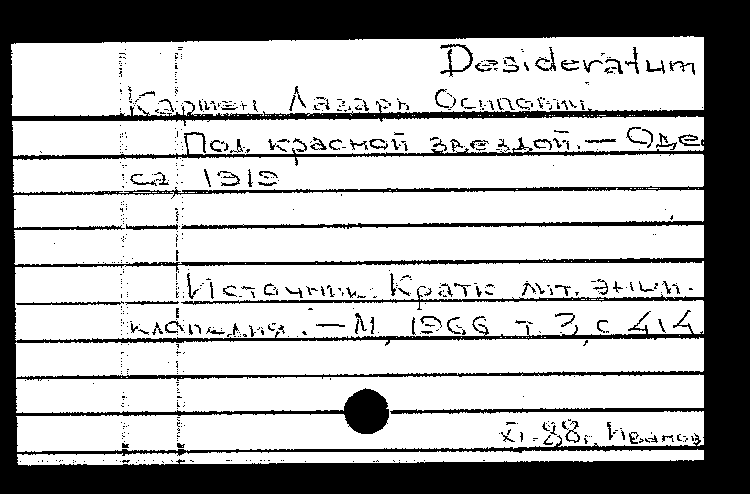 Desideratum
Кармен, Лазарь Осипович.
Под красной звездой. — Оде
са, 1919
Источник: Кратк. лит. энци-
клопедия. — М., 1966. т. 3, с. 414.
XI-88г. Иванов